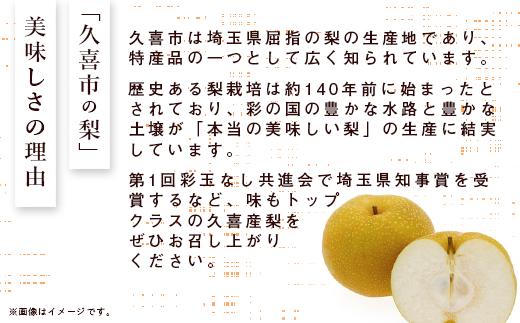 「久喜市の梨」
美味しさの理由
久喜市は埼玉県屈指の梨の生産地であり、
特産品の一つとして広く知られています。
歴史ある梨栽培は約140年前に始まったと
されており、彩の国の豊かな水路と豊かな
土壌が「本当の美味しい梨」の生産に結実
しています。
第1回彩玉なし共進会で埼玉県知事賞を受
賞するなど、味もトップ
クラスの久喜産梨を
ぜひお召し上がり
ください。
※画像はイメージです。